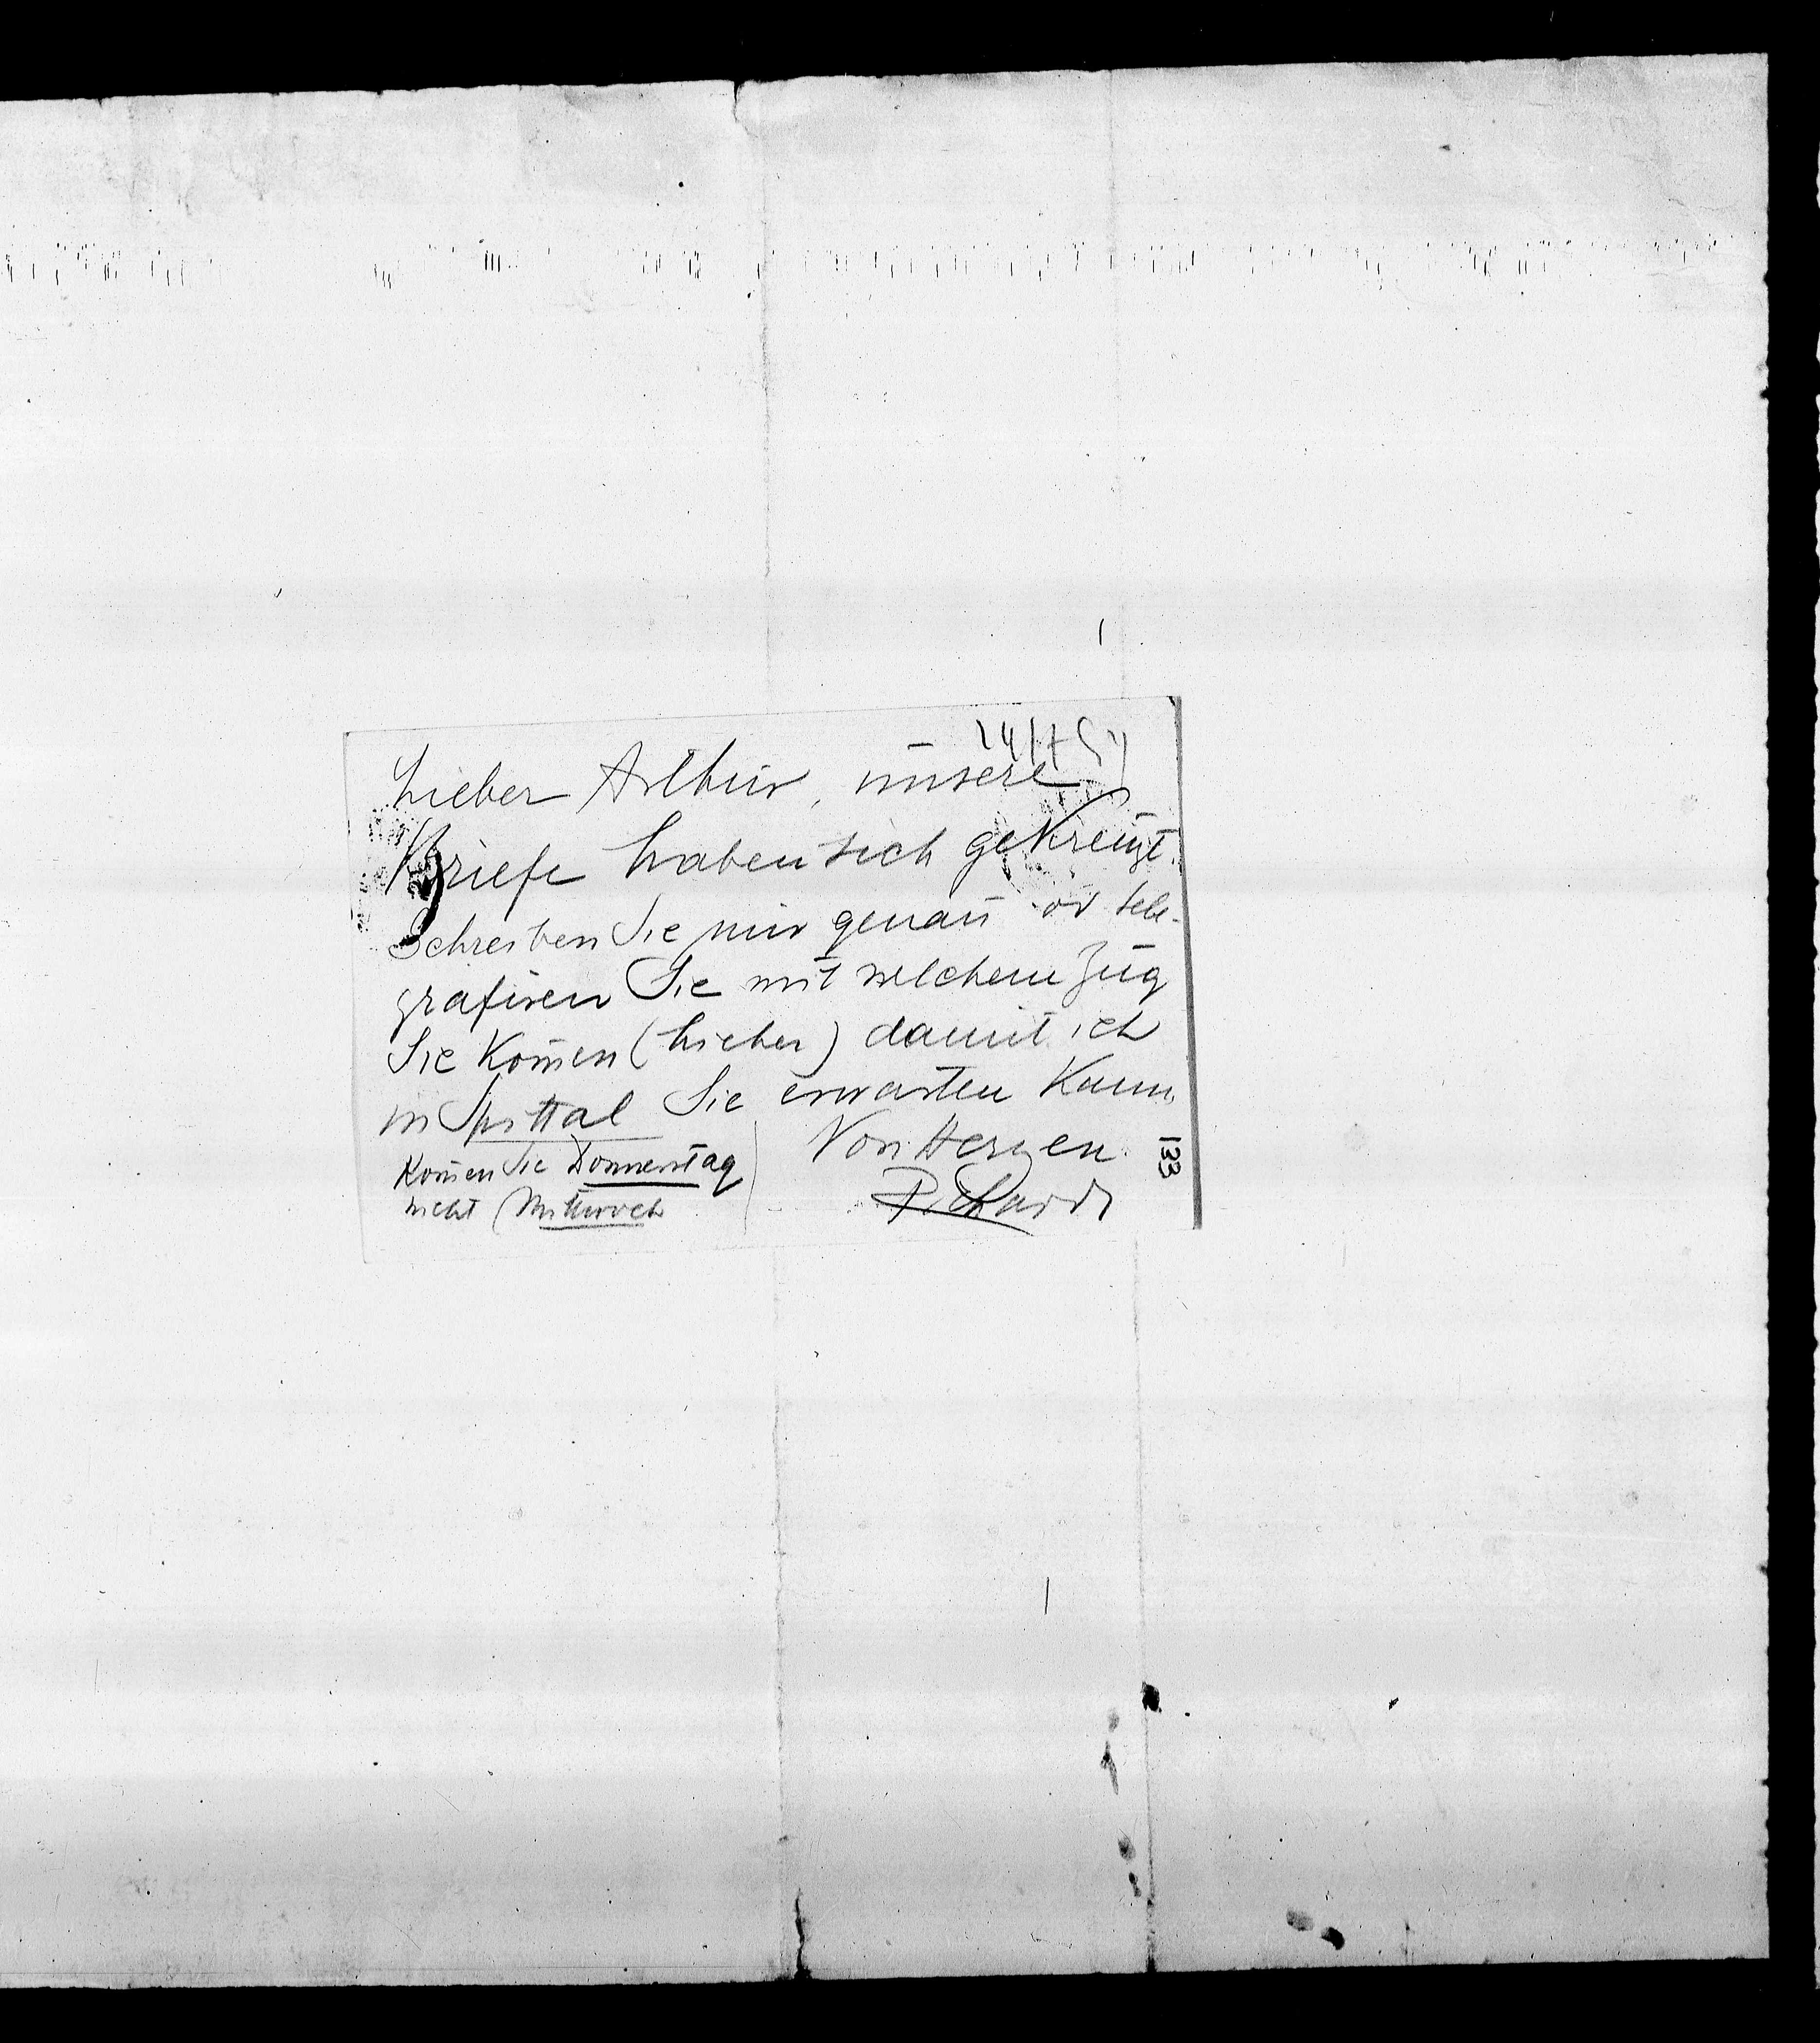 Lieber Arthur, unsere
Briefe haben sich gekreuzt.
Schreiben Sie mir genau od tele-
grafiren Sie mit welchem Zug
Sie kom̄en (hieher) damit ich
in Spittal Sie erwarten kann.
Von Herzen
Richard
Kom̄en Sie Donnerstag
nicht Mittwoch
133